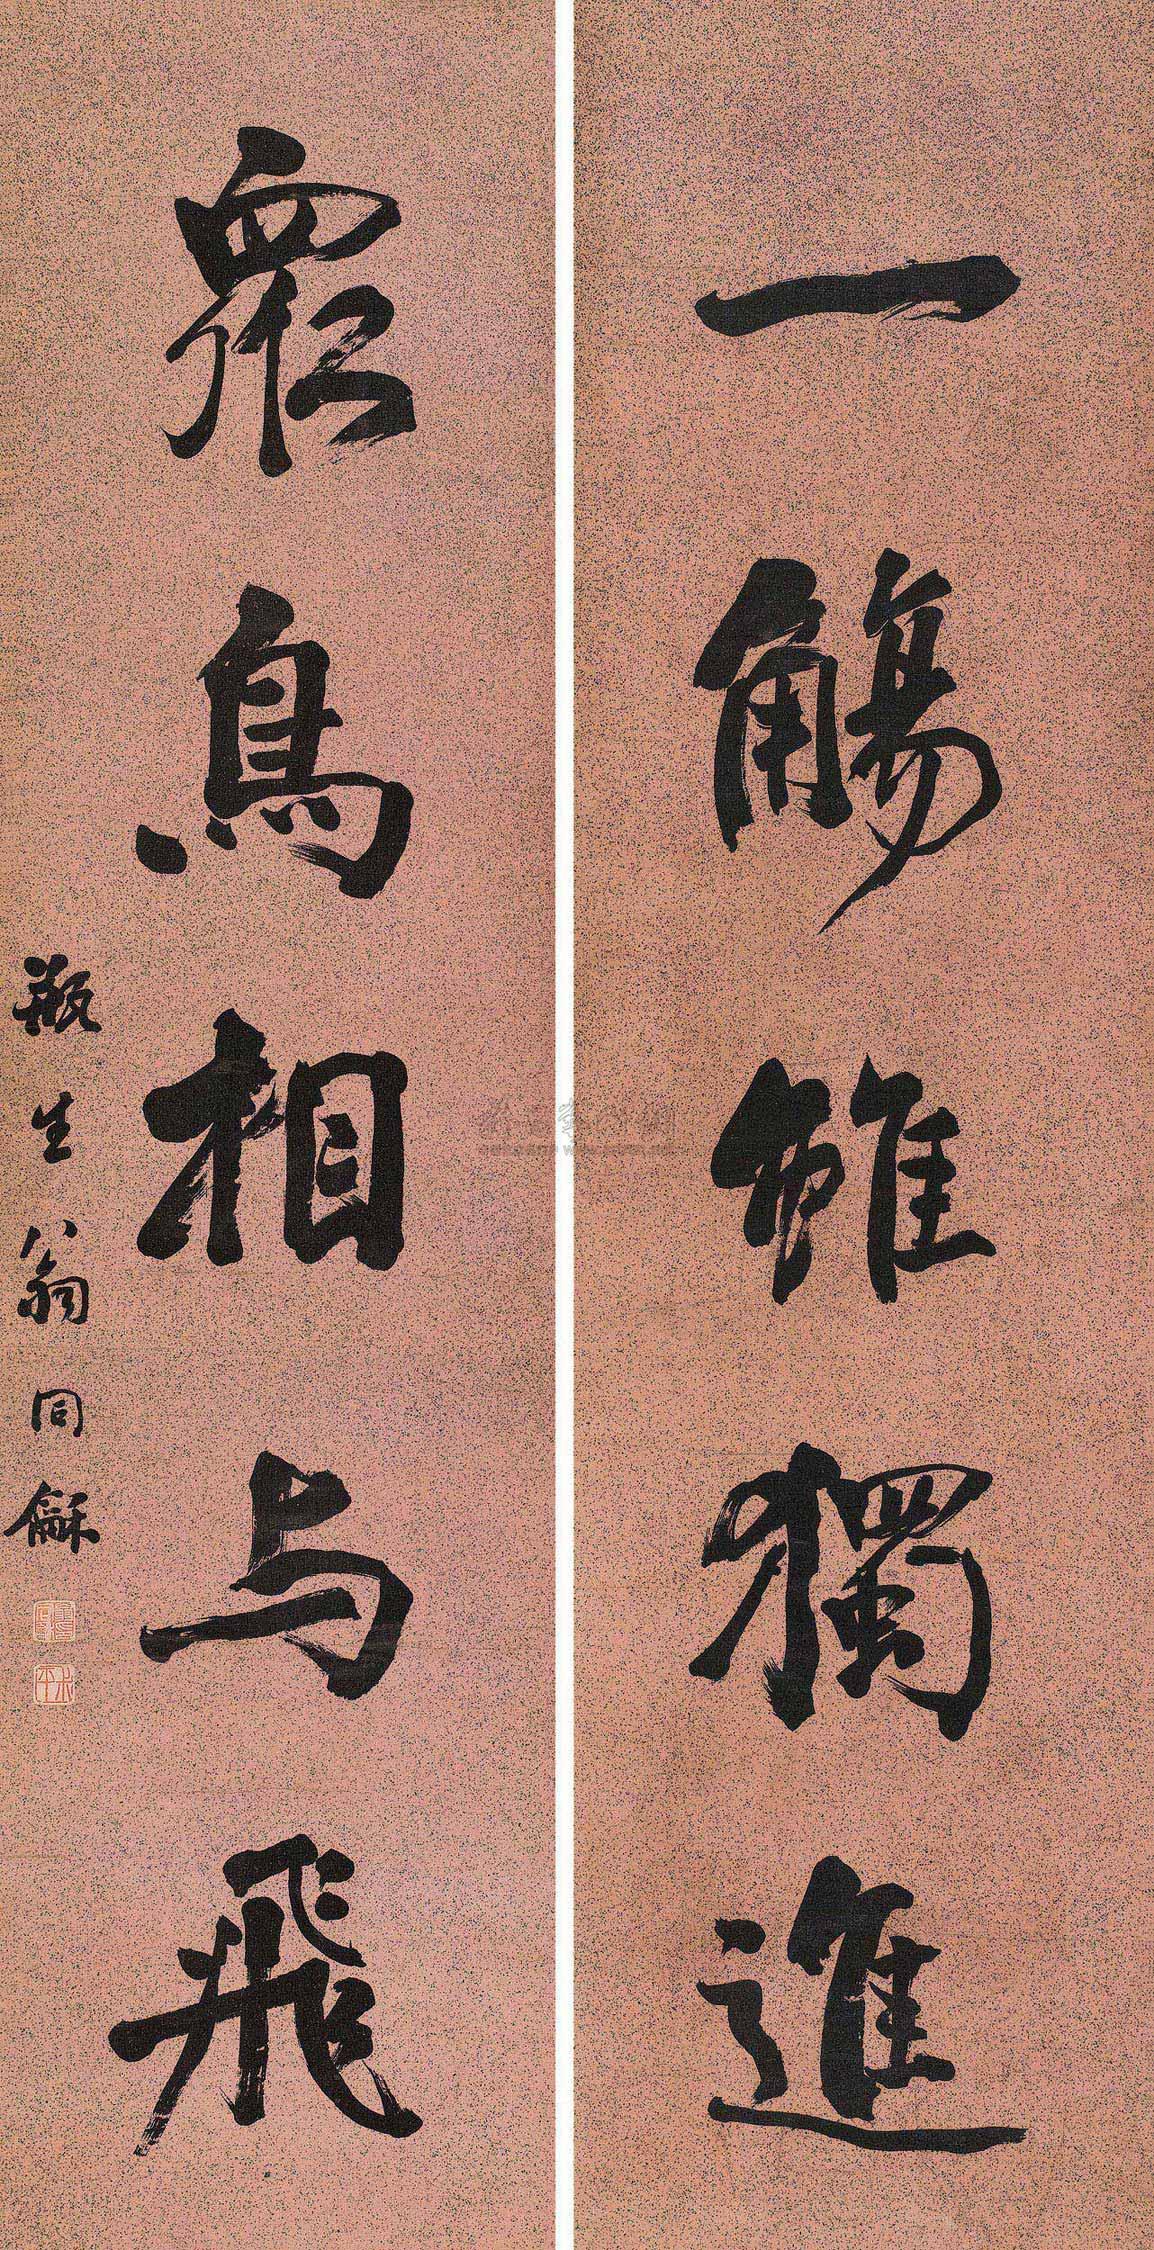 一觴雖獨進
眾鳥相与飛
瓶生翁同龢